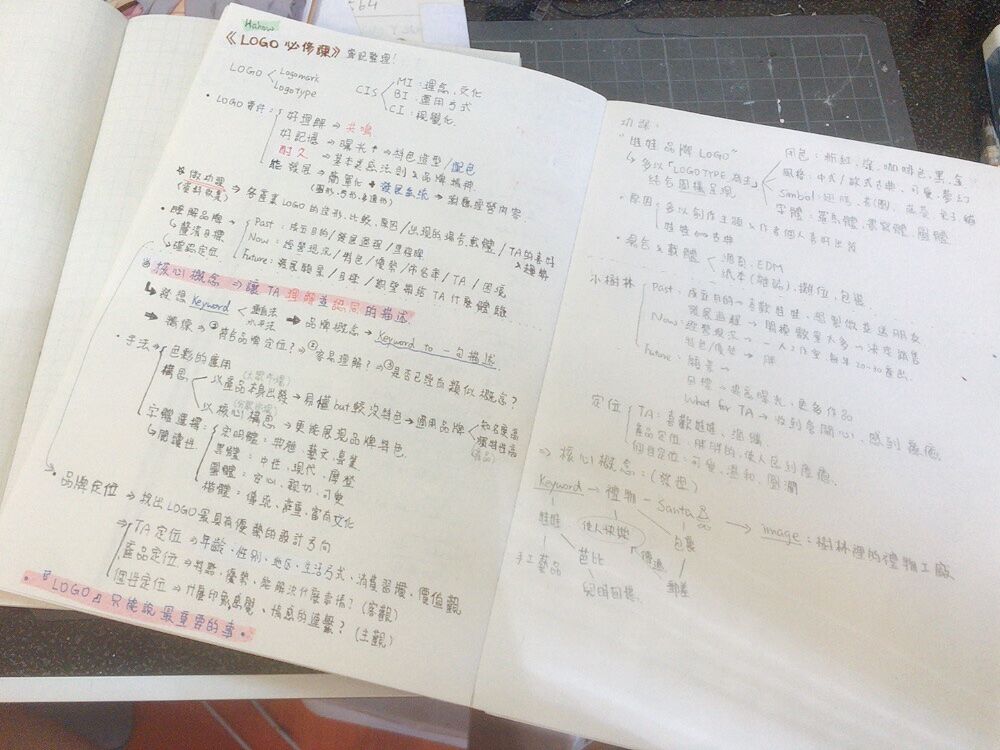 564
Hahow
《LOGO 必修課》筆記整理！
LOGO < Logomark
Logotype
CIS < MI：理念、文化
BI：運用方式
CI：視覺化
• LOGO要件：好理解 → 共鳴
好記憶 → 曝光↑ → 特色造型/配色
耐久 → 基本美感法則 & 品牌精神
能發展 → 簡單化 → 發展系統 → 對應經營內容
(圖形、弓形、多邊形)
做功課 → 各產業LOGO的造形、比較、原因/出現的場合、軟體/TA的喜好
(資料收集)
& 趨勢
• 瞭解品牌 → Past：成立目的/發展過程/里程碑
↳ 釐清目標
Now：經營現況/特色/優勢/市名率/TA/困境
↳ 確認定位
Future：發展願景/目標/期望帶給TA什麼體驗
核心概念 → 讓TA理解並認同的描述
↳ 發想 Keyword < 垂直法
水平法
→ 品牌概念 → Keyword to 一句描述
→ ① 符合品牌定位？→ ② 容易理解？→ ③ 是否已經有類似概念？
• 手法 → 色彩的應用
構思 < 以產品本身出發 → 易懂but較沒特色 → 適用品牌 < 知名度高
獨特性高
(產品)
以核心構思 → 更能展現品牌特色
字體選擇：宋明體：典雅、藝文、專業
↳ 閱讀性
黑體：中性、現代、摩登
圓體：安心、親切、可愛
楷體：傳統、莊重、富有文化
• 品牌定位 → 找出LOGO最具有優勢的設計方向
⇒ TA定位 → 年齡、性別、地區、生活方式、消費習慣、價值觀
產品定位 → 特點、優勢、能解決什麼事情？(客觀)
個性定位 → 什麼印象感覺、情感的連繫？(主觀)
• 『LOGO只能說最重要的事』
功課：
"娃娃品牌 LOGO"
↳ 多以「LOGOTYPE 為主」
結合圖樣呈現
用色：粉紅、度、咖啡色、黑、金
風格：中式/歐式古典、可愛、夢幻
字體：圓體
• 原因：多以創作主題 & 作者個人喜好出發
娃娃 ⇔ 古典
• 場合 & 軟體 < 網頁、EDM
紙本(雜誌)、攤位、包裝
小樹林 Past：成立目的 → 喜歡娃娃、想製做並送朋友
發展過程 → 開模數量太多 → 決定銷售
Now：經營現況 → 一人工作室 每年20-30產出
特色/優勢 → 胖
Future：願景 →
目標 → 提高曝光、更多作品
What for TA → 收到會開心、感到療癒
定位 TA：喜歡娃娃、
產品定位：胖胖的、使人感到療癒
個性定位：可愛、溫和、圓潤
⇒ 核心概念：(發想)
Keyword → 禮物 - Santa → image：樹林裡的禮物工廠
娃娃 使人快樂 包裹
手工藝品 芭比 傳遞 郵差
兒時回憶